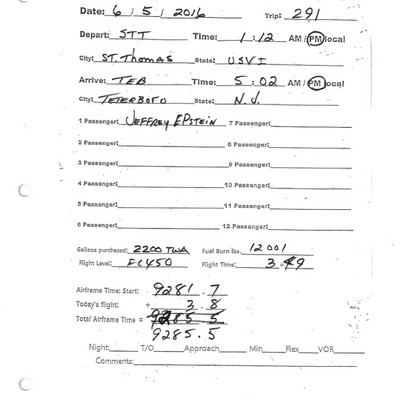 Date: 6 / 5 / 2016 Trip: 291
Depart: STT Time: 1:12 AM / PM local
City: ST. THOMAS State: USVI
Arrive: TEB Time: 5:02 AM / PM local
City: TETERBORO State: N.J.
1 Passenger: JEFFREY EPSTEIN 7 Passenger:
2 Passenger: 8 Passenger:
3 Passenger: 9 Passenger:
4 Passenger: 10 Passenger:
5 Passenger: 11 Passenger:
6 Passenger: 12 Passenger:
Gallons purchased: 2200 TWA Fuel Burn lbs. 12001
Flight Level: FL450 Flight Time: 3.49
Airframe Time: Start: 9281.7
Today's flight: + 3.8
Total Airframe Time = 9285.5
9285.5
Night: T/O Approach Min Flex VOR
Comments: